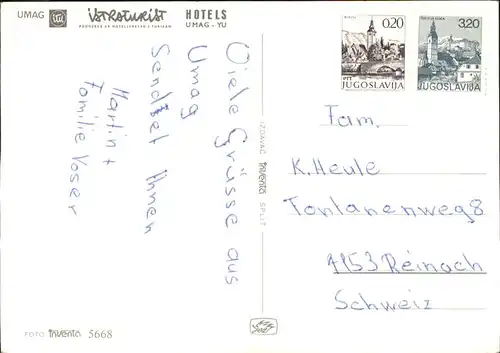 UMAG
istraturist
HOTELS
UMAG - YU
Viele Grüsse aus
Umag
Sendet Ihnen
Martin +
Familie Voser
IZDAVAČ inventa SPLIT
FOTO inventa 5668
0,20
JUGOSLAVIJA
3,20
JUGOSLAVIJA
Fam.
K. Heule
Fontanenweg 8
4153 Reinach
Schweiz